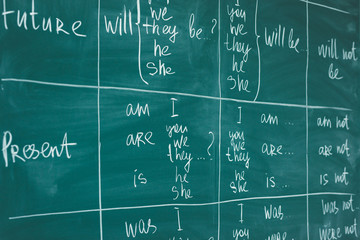 Future will we be..? you will be.. will not
they we be
he they
she he
she
Present am I I am ... am not
are you you are ... are not
we we
they ...? they
is he he is ... is not
she she
was I I was ... was not...
you were not